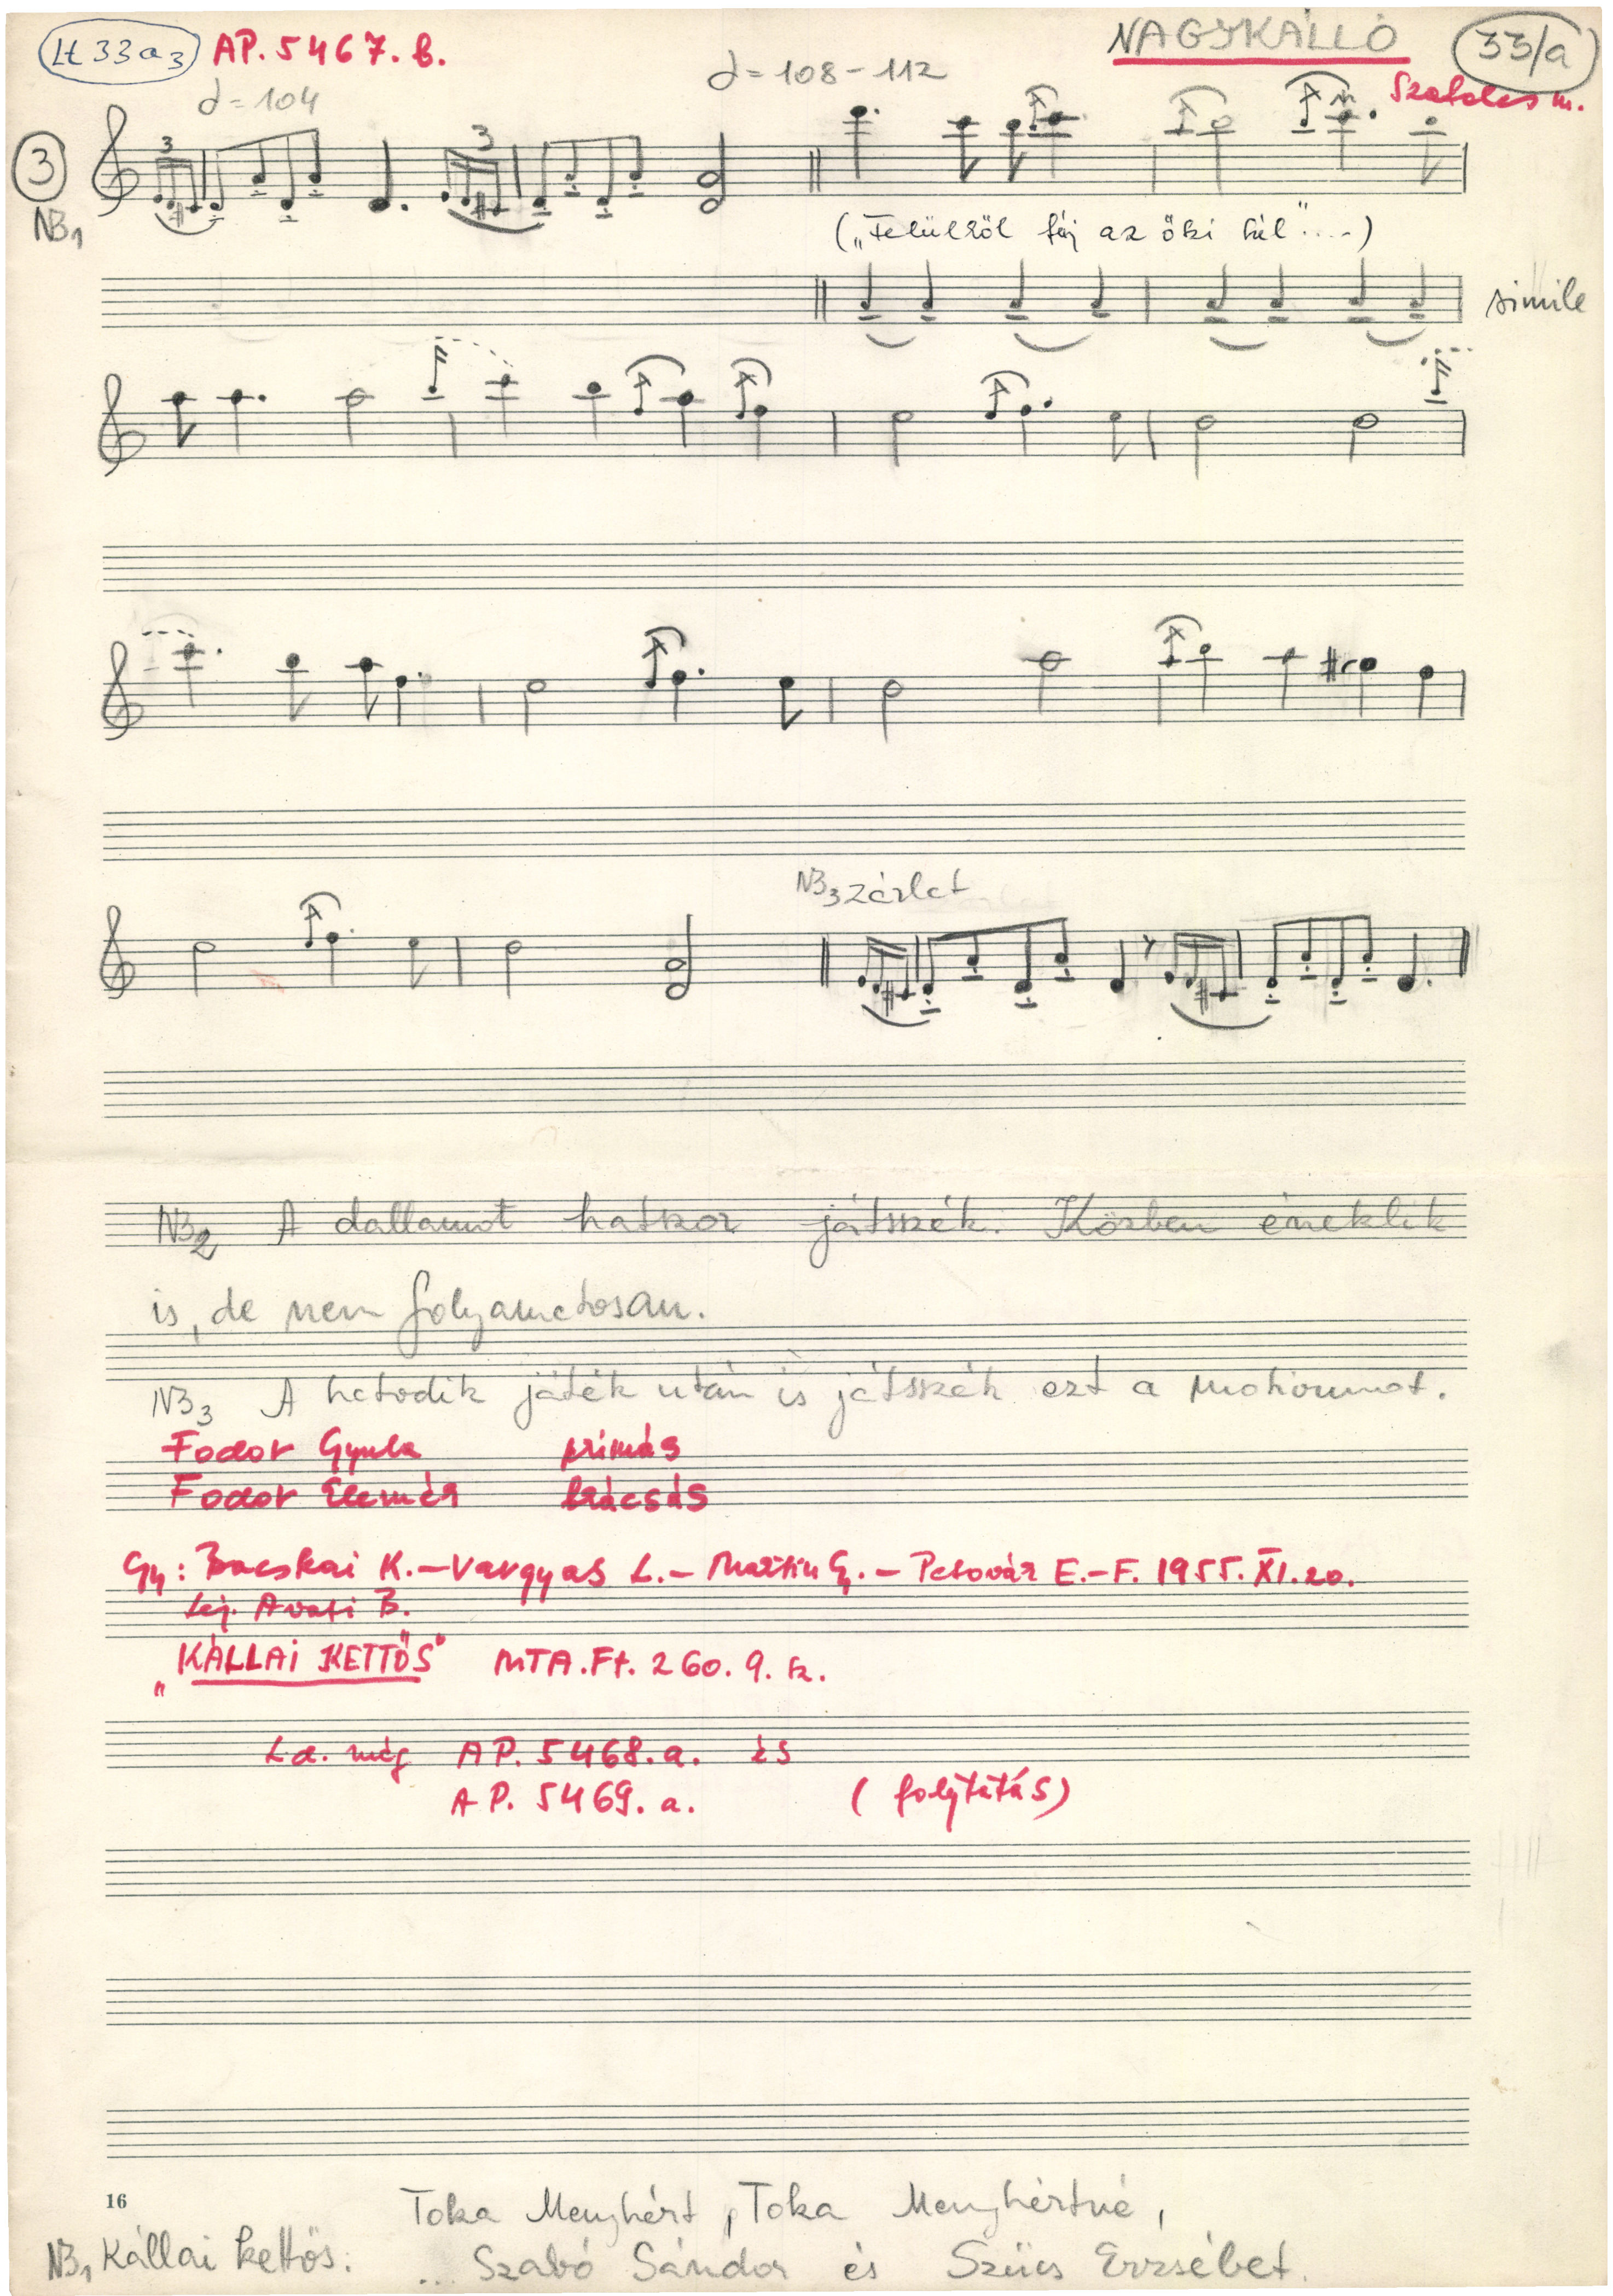 Lt 33a3 AP. 5467. b. NAGYKÁLLÓ 33/a
Szabolcs m.
♩= 104 ♩= 108 - 112
3 3 3
NB1
("Felülről fúj az őszi szél"....)
simile
NB3 zárlat
NB2 A dallamot hatszor játsszák. Közben éneklik
is, de nem folyamatosan.
NB3 A hatodik játék után is játsszák ezt a motívumot.
Fodor Gyula prímás
Fodor Elemér brácsás
Gy: Bacskai K. – Vargyas L. – Martin Gy. – Pesovár E.-F. 1955. XI. 20.
Lej. Avasi B.
"KÁLLAI KETTŐS" MTA. Ft. 260. 9. sz.
Ld. még AP. 5468. a. és
AP. 5469. a. (folytatás)
16
Toka Menyhért, Toka Menyhértné,
NB1 Kállai kettős: ... Szabó Sándor és Szücs Erzsébet.